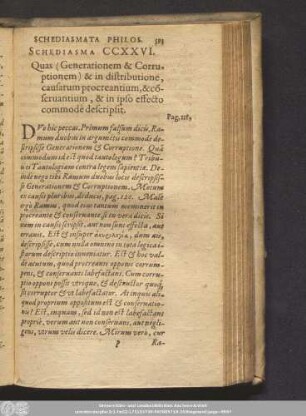 SCHEDIASMATA PHILOS.
SCHEDIASMA CCXXVI.
Quas (Generationem & Corru-
ptionem) & in distributione,
causarum procreantium, &cõ-
seruantium, & in ipso effecto
commode descripsit.
Pag. 118.
DVo hic peccat. Primum falsum dicit, Ra-
mum duobus in argumẽtis commode de-
scripsisse Generationem & Corruptionẽ. Quã
commodum id est quod tautologum? Tribu-
is Tautologiam contra legem sapientiæ. De-
inde nego tibi Ramum duobus locis descripsis-
se Generationem & Corruptionem. Mirum
ex causis pluribus, de duce, pag. 120. Mult
ergo Ramus, quod eius tantum meminerit in
procreante & conseruante, si tu vera dicis. Si
non in causis scripsit, aut non suus effectis, aut
erraui. Est & insuper
descripsisse, cum nulla omnino in tota logica
starum descriptio inueniatur. Est & hoc val-
de acutum, quod procreanti opponi corrum-
pens, & conseruanti labefactans. Cum corru-
ptio opponi possit vtrique, & destructor quoq;
sit corruptor & vt labefactator. At inquis ali-
quod proprium oppositum est & conseruatio-
nis? Est, inquam, sed id non est labefactans
proprie, verum aut non conseruans, aut negli-
gens, verum velis dicere. Mirum vero, cur
p Ra-